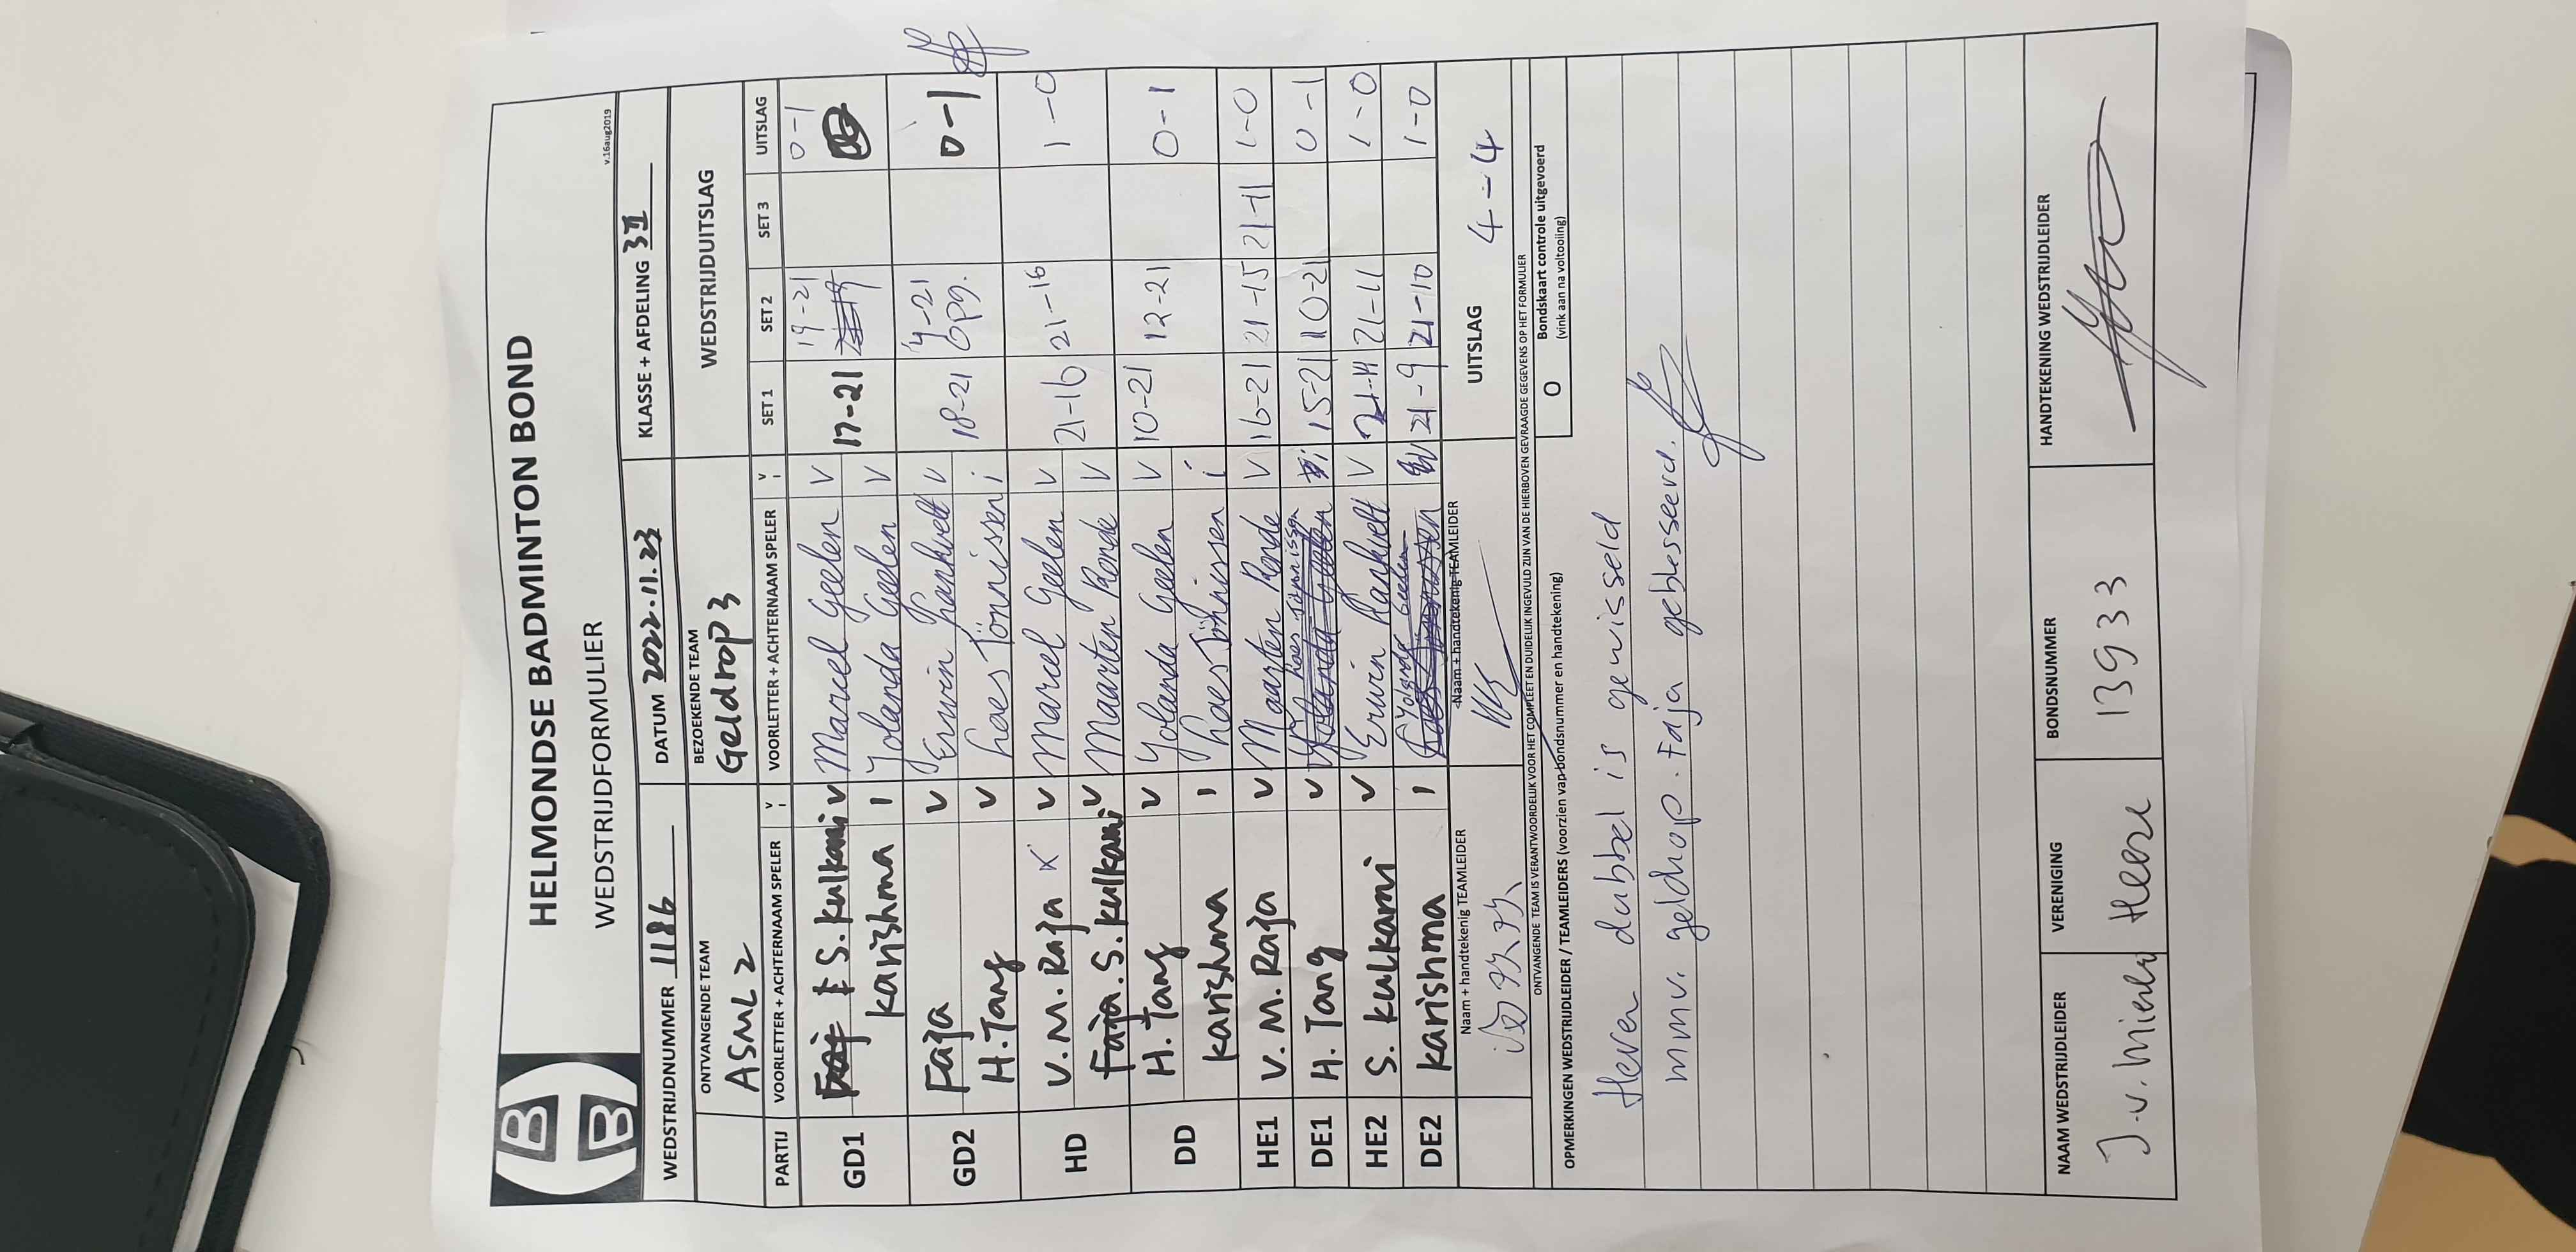 HELMONDSE BADMINTON BOND
WEDSTRIJDFORMULIER
v.16aug2019
WEDSTRIJDNUMMER 1186 DATUM 2022.11.23 KLASSE + AFDELING 3II
ONTVANGENDE TEAM BEZOEKENDE TEAM WEDSTRIJDUITSLAG
ASML 2 Geldrop 3
PARTIJ VOORLETTER + ACHTERNAAM SPELER V I VOORLETTER + ACHTERNAAM SPELER V I SET 1 SET 2 SET 3 UITSLAG
GD1 S. kulkarni V Marcel Geelen V 17-21 19-21 0-1
karishma I Yolanda Geelen V
GD2 Faja V Erwin Rankwelt V 18-21 4-21 opg. 0-1
H. Tang V Loes Tönnissen i
HD V. M. Raja x V Marcel Geelen V 21-16 21-16 1-0
Faja. S. kulkarni V Maarten Ronde V
DD H. Tang V Yolanda Geelen V 10-21 12-21 0-1
karishma I Loes Tönnissen i
HE1 V. M. Raja V Maarten Ronde V 16-21 21-15 21-11 1-0
DE1 H. Tang V Loes Tönnissen i 15-21 10-21 0-1
HE2 S. kulkarni V Erwin Rankwelt V 21-14 21-11 1-0
DE2 karishma I Yolanda Geelen V 21-9 21-10 1-0
Naam + handtekenig TEAMLEIDER Naam + handtekenig TEAMLEIDER UITSLAG 4-4
ONTVANGENDE TEAM IS VERANTWOORDELIJK VOOR HET COMPLEET EN DUIDELIJK INGEVULD ZIJN VAN DE HIERBOVEN GEVRAAGDE GEGEVENS OP HET FORMULIER
OPMERKINGEN WEDSTRIJDLEIDER / TEAMLEIDERS (voorzien van bondsnummer en handtekening)
O Bondskaart controle uitgevoerd
(vink aan na voltooiing)
Heren dubbel is gewisseld
mmv. geldrop. Faja geblesseerd.
NAAM WEDSTRIJDLEIDER VERENIGING BONDSNUMMER HANDTEKENING WEDSTRIJDLEIDER
J. v. Mierlo Heeze 13933